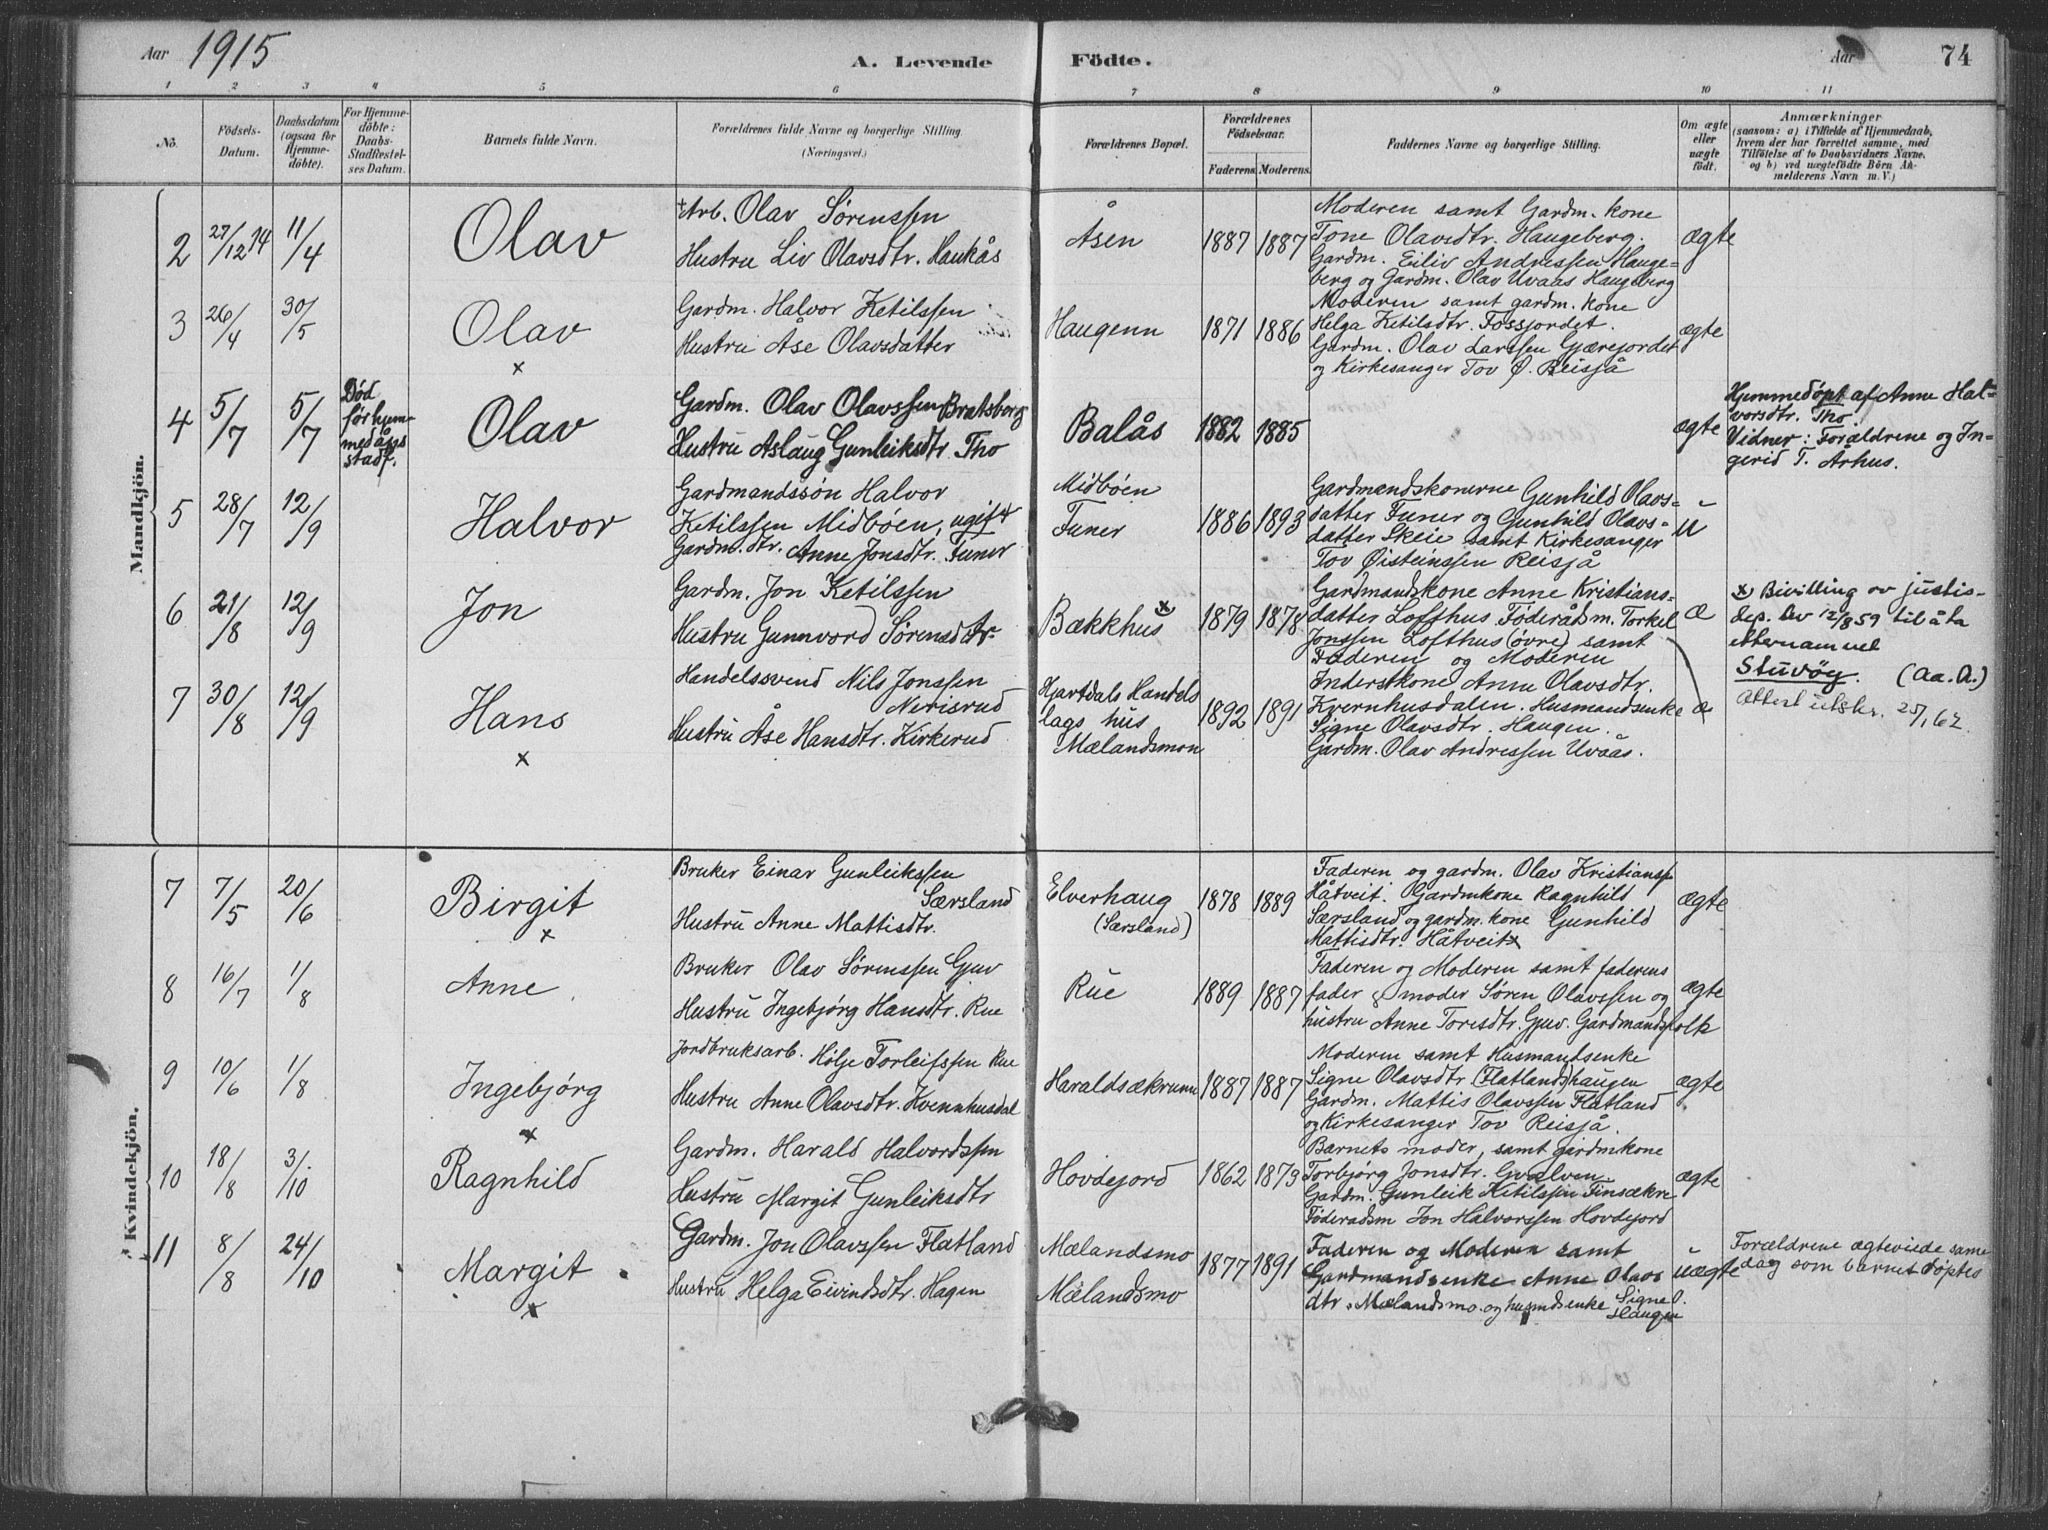 Aar 1915
A. Levende Födte.
Aar 74
1 2 3 4 5 6 7 8 9 10 11
No.
Födsels-
Datum.
Daabsdatum
(ogsaa for
Hjemme-
döbte).
For Hjemme-
döbte:
Daabs-
Stadfæstel-
ses Datum.
Barnets fulde Navn.
Forældrenes fulde Navne og borgerlige Stilling.
(Næringsvei.)
Forældrenes Bopæl.
Forældrenes
Födselsaar.
Faderens. Moderens.
Faddernes Navne og borgerlige Stilling.
Om ægte
eller
uægte
födt.
Anmærkninger
(saasom: a) i Tilfælde af Hjemmedaab,
hvem der har forrettet samme, med
Tilföielse af to Daabsvidners Navne,
og b) ved uægtefödte Börn An-
melderens Navn m. V.)
Mandkjön.
2 27/12 14 11/4 Olav
Arb. Olav Sørenssen
Hustru Liv Olavsdtr. Haukås
Åsen 1887 1887
Moderen samt Gardm. kone
Tone Olavsdtr. Haugeberg.
Gardm. Eiliv Andressen Hauge-
berg og Gardm. Olav Uvaas Haugeberg
ægte
3 26/4 30/5 Olav
x
Gardm. Halvor Ketilssen
Hustru Åse Olavsdatter
Haugenn 1871 1886
Moderen samt gardm. kone
Helga Ketilsdtr. Fossjordet.
Gardm. Olav Larssen Gjærejordet
og Kirkesanger Tov Ø. Reisjå
ægte
4 5/7 5/7
Død
før hjem-
medåps
stadf.
Olav
Gardm. Olav Olavssen Bratsberg
Hustru Aslaug Gunleiksdtr Tho
Balås 1882 1885
ægte
Hjemmedøpt af Anne Hal-
vorsdtr. Tho.
Vidner: Forældrene og In-
gerid T. Århus.
5 28/7 12/9 Halvor
Gardmandssøn Halvor
Ketilssen Midbøen, ugift
Gardm. dtr. Anne Jonsdtr. Funer
Midbøen
Funer
1886 1893
Gardmandskonerne Gunhild Olavs-
datter Funer og Gunhild Olavs-
datter Skeie samt Kirkesanger
Tov Øisteinssen Reisjå
u
6 21/8 12/9 Jon
Gardm. Jon Ketilssen
Hustru Gunnvord Sørensdtr
Bækkhus x 1879 1878
Gardmandskone Anne Kristians-
datter Lofthus Føderådsm. Torkel
Jonssen Lofthus (øvre) samt
Faderen og Moderen
æ
x Bivilling ov justis-
dep. dev 12/8 59 til å ta
etternamnet
Stuvøy. (Aa. A.)
Attest utskr. 25/1 62.
7 30/8 12/9 Hans
x
Handelssvend Nils Jonssen
Nerisrud
Hustru Åse Hansdtr. Kirkerud
Hjartdals Handels
lags hus
Mælandsmon
1892 1891
Inderstkone Anne Olavsdtr.
Kvernhusdalen. Husmandsenke
Signe Olavsdtr. Haugen.
Gardm. Olav Andressen Uvaås.
æ
Kvindekjön.
7 7/5 20/6 Birgit
x
Bruker Einar Gunleikssen
Særsland
Hustru Anne Mattisdtr.
Elverhaug
(Særsland)
1878 1889
Faderen og gardm. Olav Kristianss
Håtveit. Gardmkone Ragnhild
Særsland og gardm. kone Gunhild
Mattisdtr. Håtveit
ægte
8 16/7 1/8 Anne
Bruker Olav Sørenssen Gjuv
Hustru Ingebjørg Hansdtr. Rue
Rue 1889 1887
Faderen og Moderen samt faderens
fader & moder Søren Olavssen og
hustru Anne Toresdtr. Gjuv. Gardmandsfolk
ægte
9 10/6 1/8 Ingebjörg
x
Jordbruksarb. Hølje Torleifssen Rue
Hustru Anne Olavsdtr. Kvennhusdal
Haraldsækrunn 1887 1887
Moderen samt Husmandsenke
Signe Olavsdtr. (Flatlands)haugen
Gardm. Mattis Olavssen Flatland
og Kirkesanger Tov Reisjå.
ægte
10 18/8 3/10 Ragnhild
Gardm. Harald Halvordssen
Hustru Margit Gunleiksdtr
Hovdejord 1862 1873
Barnets moder, samt gardmkone
Torbjørg Jonsdtr. Gvalven
Gardm. Gunleik Ketilssen Finsækre
Føderadsm Jon Halvorssen Hovdejord
ægte
11 8/8 24/10 Margit
x
Gardm. Jon Olavssen Flatland
Hustru Helga Eivindsdtr. Hagen
Mælandsmo
Mælandsmo
1877 1891
Faderen og Moderen samt
Gardmandsenke Anne Olavs
dtr. Mælandsmo. og husmdsenke Signe O.
Haugen
uægte
Forældrene ægteviede same
dag som barnet døptes